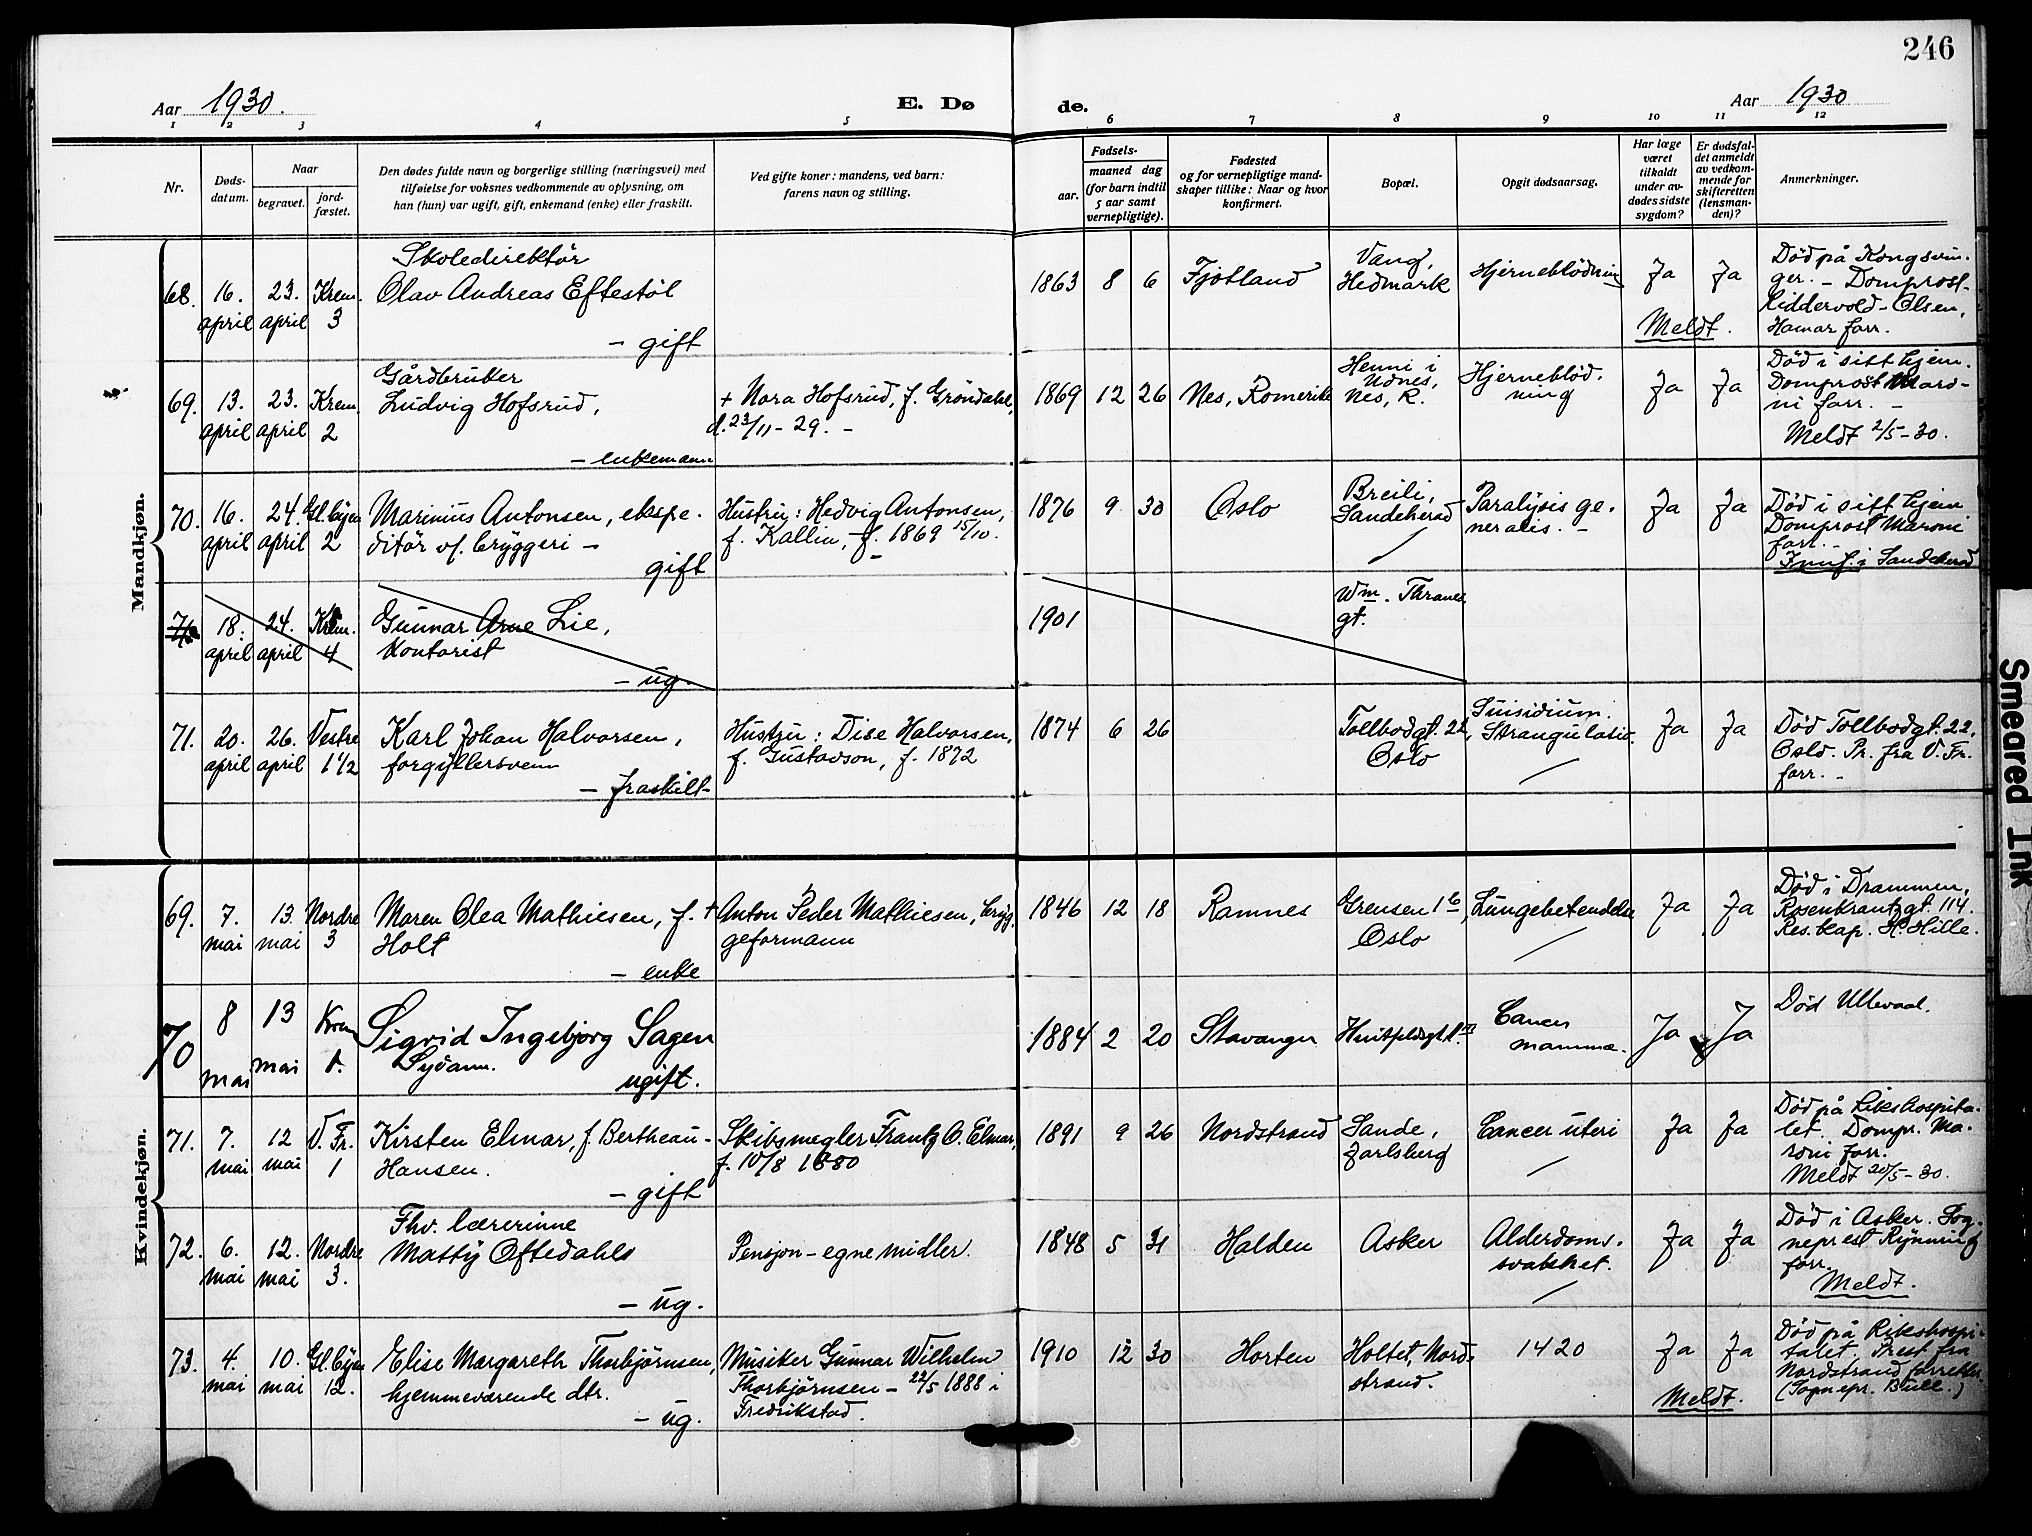 246
Aar 1930.
E. Dø de.
Aar 1930
1 2 3 4 5 6 7 8 9 10 11 12
Nr.
Døds-
datum.
Naar
begravet.
jord-
fæstet.
Den dødes fulde navn og borgerlige stilling (næringsvei) med
tilføielse for voksnes vedkommende av oplysning, om
han (hun) var ugift, gift, enkemand (enke) eller fraskilt.
Ved gifte koner: mandens, ved barn:
farens navn og stilling.
Fødsels-
aar.
maaned dag
(for barn indtil
5 aar samt
vernepligtige).
Fødested
og for vernepligtige mand-
skaper tillike: Naar og hvor
konfirmert.
Bopæl.
Opgit dødsaarsag.
Har læge
været
tilkaldt
under av-
dødes sidste
sygdom?
Er dødsfal-
det anmeldt
av vedkom-
mende for
skifteretten
(lensman-
den)?
Anmerkninger.
Mandkjøn.
68. 16. april 23. april Krem. 3
Skoledirektør
Olav Andreas Eftestøl
– gift
1863 8 6 Fjotland
Vang,
Hedmark
Hjerneblødning
Ja Ja
Meldt.
Død på Kongsvin-
ger. – Domprost
Riddervold-Olsen,
Hamar forr.
69. 13. april 23. april Krem. 2
Gårdbruker
Ludvig Hofsrud,
– enkemann
+ Nora Hofsrud, f. Grøndahl,
d. 23/11-29. –
1869 12 26 Nes, Romerike
Henni i
Udnes,
Nes, R.
Hjerneblød.
ning
Ja Ja
Død i sitt hjem.
Domprost Maro-
ni forr. –
Meldt 2/5-30.
70. 16. april 24. april Gl. byen 2
Marinius Antonsen, ekspe-
ditør v/ bryggeri –
gift
Hustru: Hedvig Antonsen,
f. Kallin, – f. 1869 15/10.
1876 9 30 Oslo
Breili,
Sandeherad
Paralysis ge-
neralis. –
Ja Ja
Død i sitt hjem
Domprost Maroni
forr.
Innf. i Sandeherad
71. 18. april 24. april Krem. 4
Gunnar Arne Lie,
kontorist
– ug.
1901
Wm. Thranes
gt.
71. 20. april 26. april Vestre 1 1/2
Karl Johan Halvorsen,
forgyllersvenn
– fraskilt
Hustru: Dise Halvorsen,
f. Gustavson, f. 1872
1874 6 26
Tollbodgt. 22,
Oslo
Suisidium.
Strangulatio.
Ja Ja
Død Tollbodgt. 22,
Oslo. Pr. fra V. Fr.
forr. –
Kvindekjøn.
69. 7. mai 13. mai Nordre 3
Maren Olea Mathiesen, f.
Holt
– enke
+ Anton Peder Mathiesen, bryg-
geformann
1846 12 18 Ramnes
Grensen 16,
Oslo
Lungebetendelse
Ja Ja
Død i Drammen,
Rosenkrantzgt. 114.
Res. kap. H. Hille.
70 8 mai 13 mai Krem 1.
Sigrid Ingebjørg Sagen
Sydame.
ugift.
1884 2 20 Stavanger
Cancer
mammæ.
Ja Ja
Død Ullevaal.
71. 7. mai 12 mai V. Fr. 1
Kirsten Elmar, f. Bertheau-
Hansen.
– gift
Skibsmegler Frantz O. Elmar,
f. 10/8 1880
1891 9 26 Nordstrand
Sande,
Jarlsberg
Cancer uteri
Ja Ja
Død på Rikshospita-
let. Dompr. Ma-
roni forr.
Meldt 20/5-30.
72. 6. mai 12. mai Nordre 3.
Fhv. lærerinne
Matty Oftedahls
– ug.
Pensjon – egne midler.
1848 5 31 Halden
Asker
Alderdoms-
svakhet.
Ja Ja
Død i Asker. Sog-
neprest Rynning
forr.
Meldt.
73. 4. mai 10. mai Gl. byen 12.
Elise Margareth Thorbjørnsen,
hjemmeværende dtr.
– ug.
Musiker Gunnar Wilhelm
Thorbjørnsen – 22/5 1888 i
Fredrikstad.
1910 12 30 Horten
Holtet, Nord-
strand.
1420
Ja Ja
Meldt.
Død på Rikshospi-
talet. Prest fra
Nordstrand forrettet.
(Sognepr. Bull.)
Smeared Ink